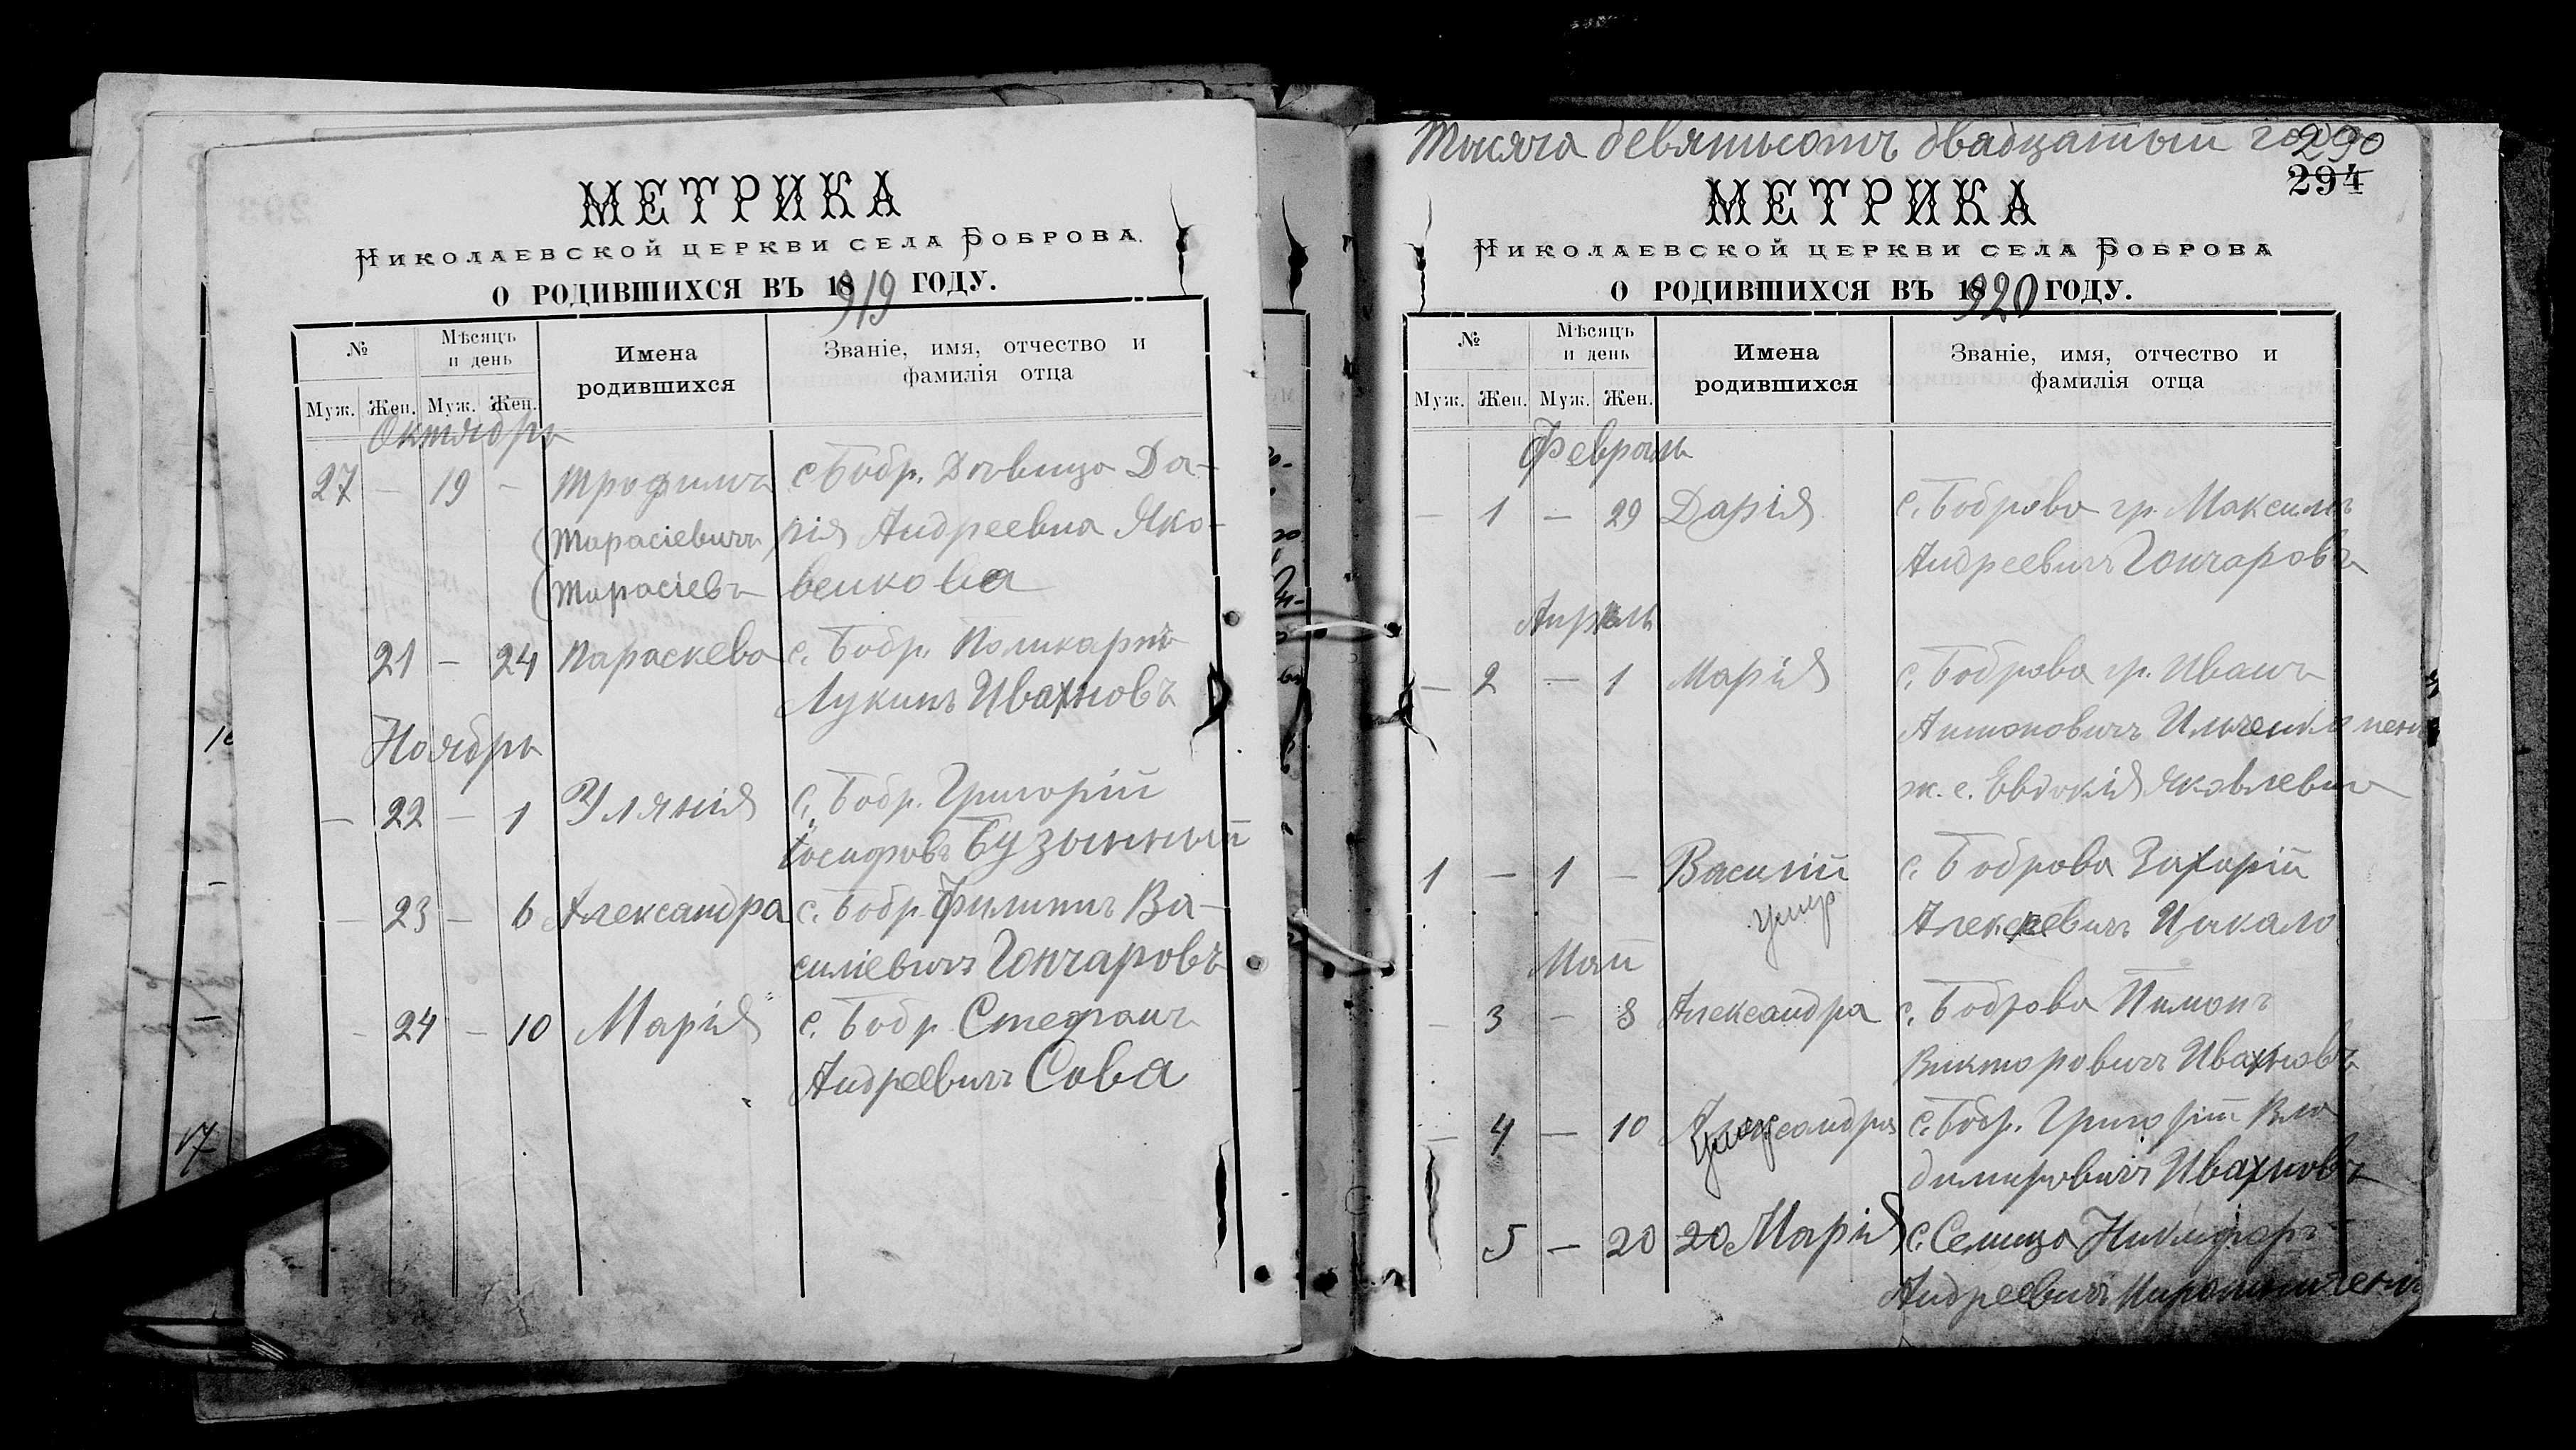 МЕТРИКА
Николаевской церкви села Боброва.
О РОДИВШИХСЯ ВЪ 1919 ГОДУ.
№
Мѣсяцъ и день
Имена родившихся
Званіе, имя, отчество и фамилія отца
Муж. Жен. Муж. Жен.
Октябрь
27 — 19 — Трофимъ с Бобр. Дѣвица Да-
(Тарасіевичъ рія Андреевна Яко-
(Тарасіевъ венкова
21 — 24 Параскева с. Бобр. Поликарпъ
Лукинъ Ивахновъ
Ноябрь
— 22 — 1 Улянія с. Бобр. Григорій
Іосифовъ Бузынный
— 23 — 6 Александра с. Бобр. Филиппъ Ва-
силіевичъ Гончаровъ
— 24 — 10 Марія с. Бобр Стефанъ
Андреевичъ Сова
17
Тысяча девятьсотъ двадцатый годъ
290
294
МЕТРИКА
Николаевской церкви села Боброва
О РОДИВШИХСЯ ВЪ 1920 ГОДУ.
№
Мѣсяцъ и день
Имена родившихся
Званіе, имя, отчество и фамилія отца
Муж. Жен. Муж. Жен.
Февраль
— 1 — 29 Дарія с. Боброва гр. Максимъ
Андреевичъ Гончаровъ
Апрѣль
— 2 — 1 Марія с. Боброва гр. Иванъ
Антоновичъ Ильченко
ж. е. Евдокія Яковлевна
1 — 1 — Василій с. Боброва Захарій
умер Алексеевичъ Цыкало
Май
— 3 — 8 Александра с. Боброва Пимонъ
Викторовичъ Ивахновъ
— 4 — 10 Александра с. Бобр. Григорій Вла
умер димировичъ Ивахновъ
5 — 20 20 Марія с. Семица Никифоръ
Андреевичъ